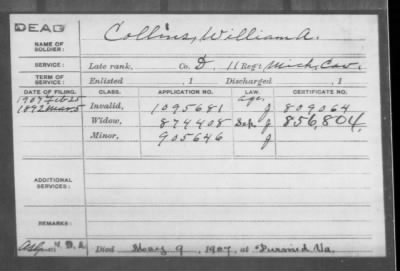 DEAD
Collins, William A.
NAME OF SOLDIER:
SERVICE: Late rank, Co. D, 11 Regt. Mich. Cav.
TERM OF SERVICE: Enlisted , 1 Discharged , 1
DATE OF FILING. CLASS. APPLICATION NO. LAW. CERTIFICATE NO.
1907 Feb 25 Invalid, 1095681 Age, J 809064
1892 Mar 5 Widow, 874408 J 856,804
Minor, 905646 J
ADDITIONAL SERVICES:
REMARKS:
Died May 9, 1907, at Va.